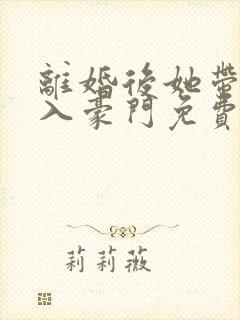 離婚後她帶
入豪門免費
莉莉薇